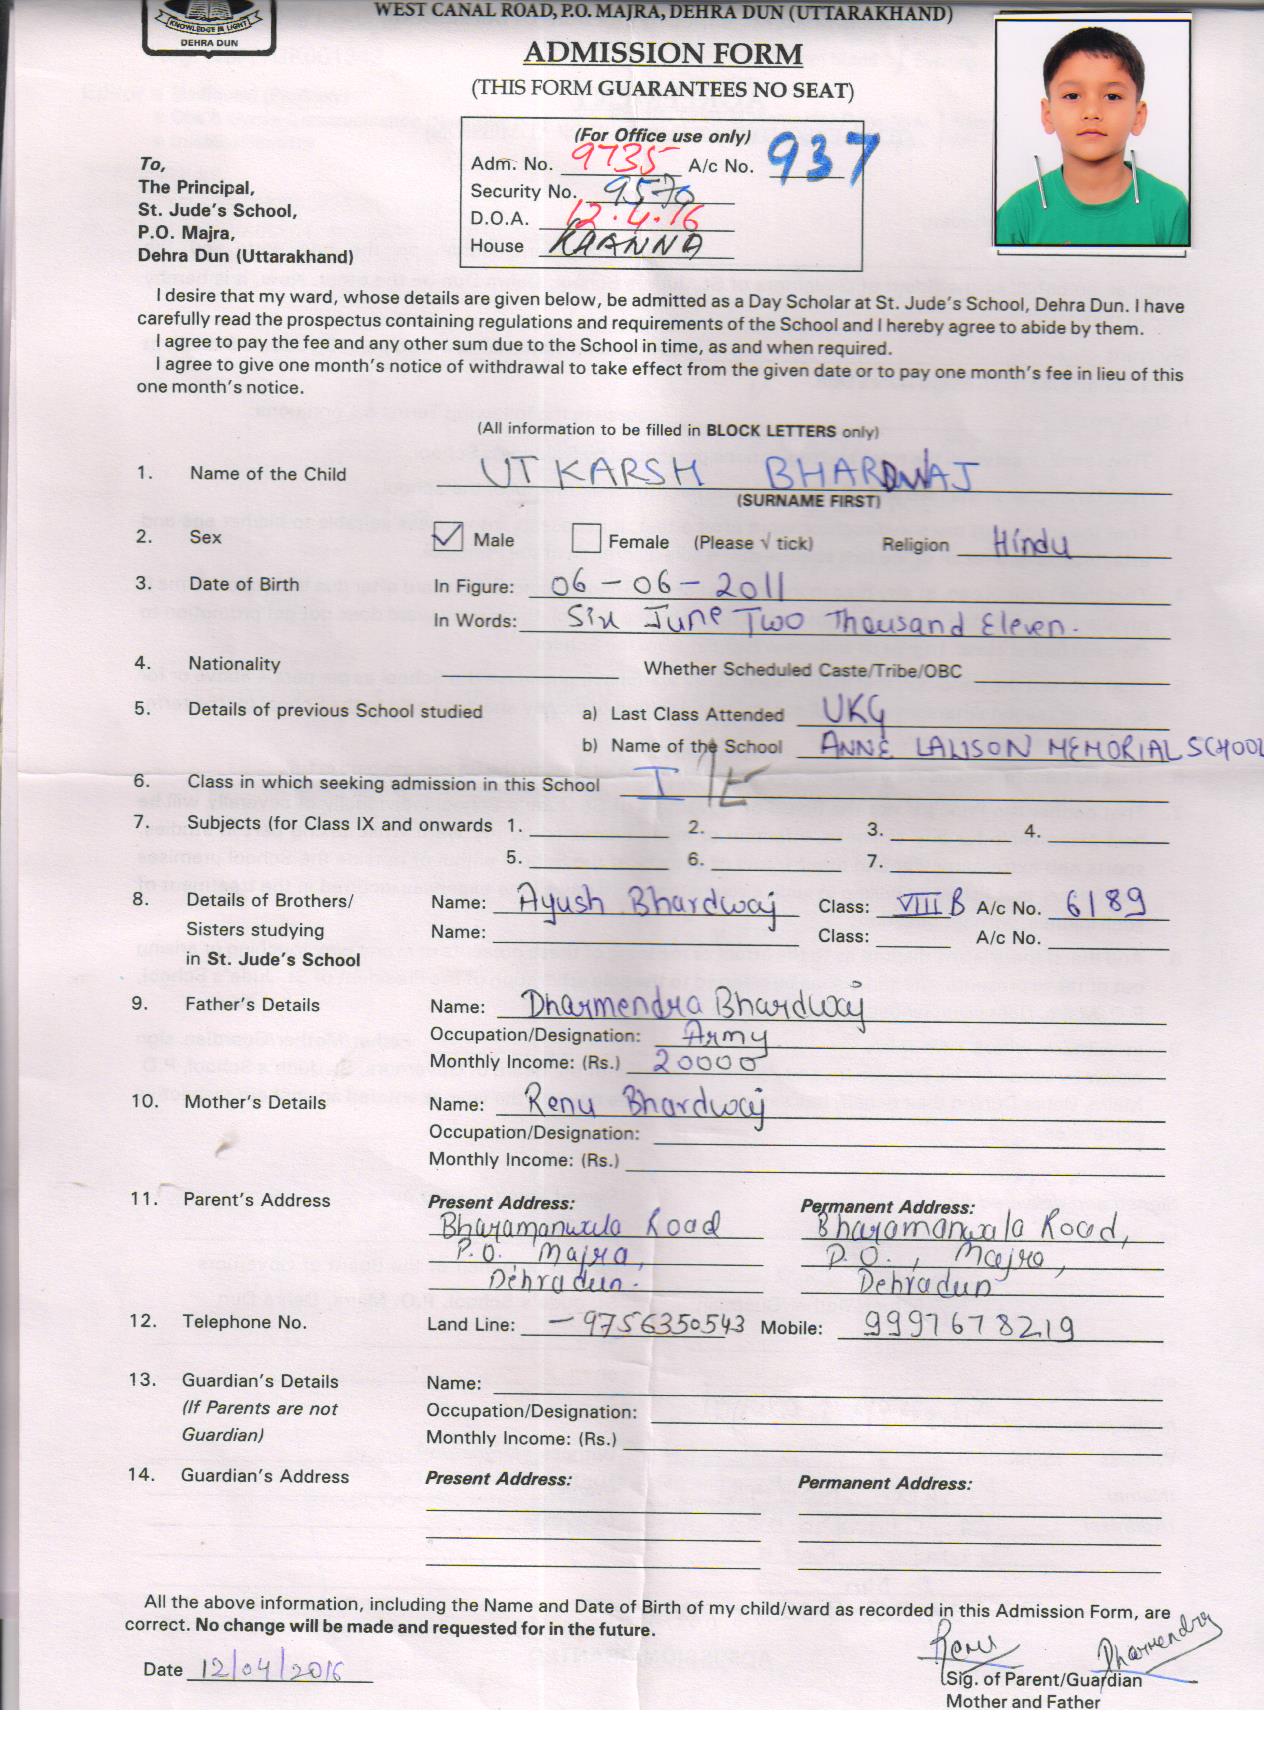 KNOWLEDGE IS LIGHT
DEHRA DUN
WEST CANAL ROAD, P.O. MAJRA, DEHRA DUN (UTTARAKHAND)
ADMISSION FORM
(THIS FORM GUARANTEES NO SEAT)
(For Office use only)
Adm. No. 9735 A/c No. 937
Security No. 9570
D.O.A. 12.4.16
House
To,
The Principal,
St. Jude's School,
P.O. Majra,
Dehra Dun (Uttarakhand)
I desire that my ward, whose details are given below, be admitted as a Day Scholar at St. Jude's School, Dehra Dun. I have
carefully read the prospectus containing regulations and requirements of the School and I hereby agree to abide by them.
I agree to pay the fee and any other sum due to the School in time, as and when required.
I agree to give one month's notice of withdrawal to take effect from the given date or to pay one month's fee in lieu of this
one month's notice.
(All information to be filled in BLOCK LETTERS only)
1. Name of the Child UTKARSH BHARDWAJ
(SURNAME FIRST)
2. Sex Male Female (Please √ tick) Religion Hindu
3. Date of Birth In Figure: 06-06-2011
In Words: Six June Two Thousand Eleven.
4. Nationality Whether Scheduled Caste/Tribe/OBC
5. Details of previous School studied a) Last Class Attended UKG
b) Name of the School ANNE LAWSON MEMORIAL SCHOOL
6. Class in which seeking admission in this School I
7. Subjects (for Class IX and onwards 1. 2. 3. 4.
5. 6. 7.
8. Details of Brothers/ Name: Ayush Bhardwaj Class: VIII B A/c No. 6189
Sisters studying Name: Class: A/c No.
in St. Jude's School
9. Father's Details Name: Dharmendra Bhardwaj
Occupation/Designation: Army
Monthly Income: (Rs.) 20000
10. Mother's Details Name: Renu Bhardwaj
Occupation/Designation:
Monthly Income: (Rs.)
11. Parent's Address Present Address: Permanent Address:
Bharamanwala Road Bharamanwala Road,
P.O. Majra, P.O., Majra,
Dehradun. Dehradun
12. Telephone No. Land Line: -9756350543 Mobile: 9997678219
13. Guardian's Details Name:
(If Parents are not Occupation/Designation:
Guardian) Monthly Income: (Rs.)
14. Guardian's Address Present Address: Permanent Address:
All the above information, including the Name and Date of Birth of my child/ward as recorded in this Admission Form, are
correct. No change will be made and requested for in the future.
Renu Dharmendra
Date 12/04/2016
Sig. of Parent/Guardian
Mother and Father